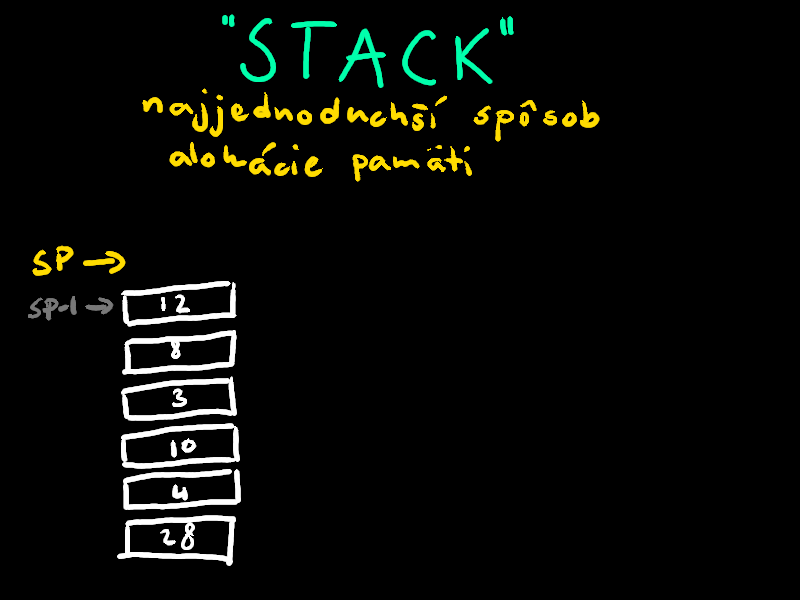 "STACK"
najjednoduchší spôsob
alokácie pamäti
SP →
SP-1 →
12
8
3
10
4
28